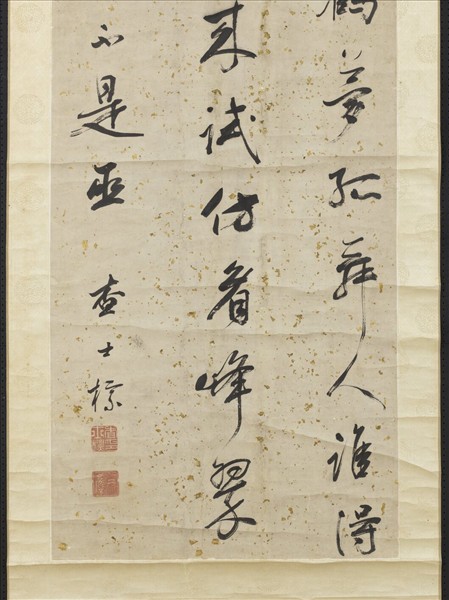 鶴夢孤舞人誰得
來試仿看峰翠
不是巫
查士標